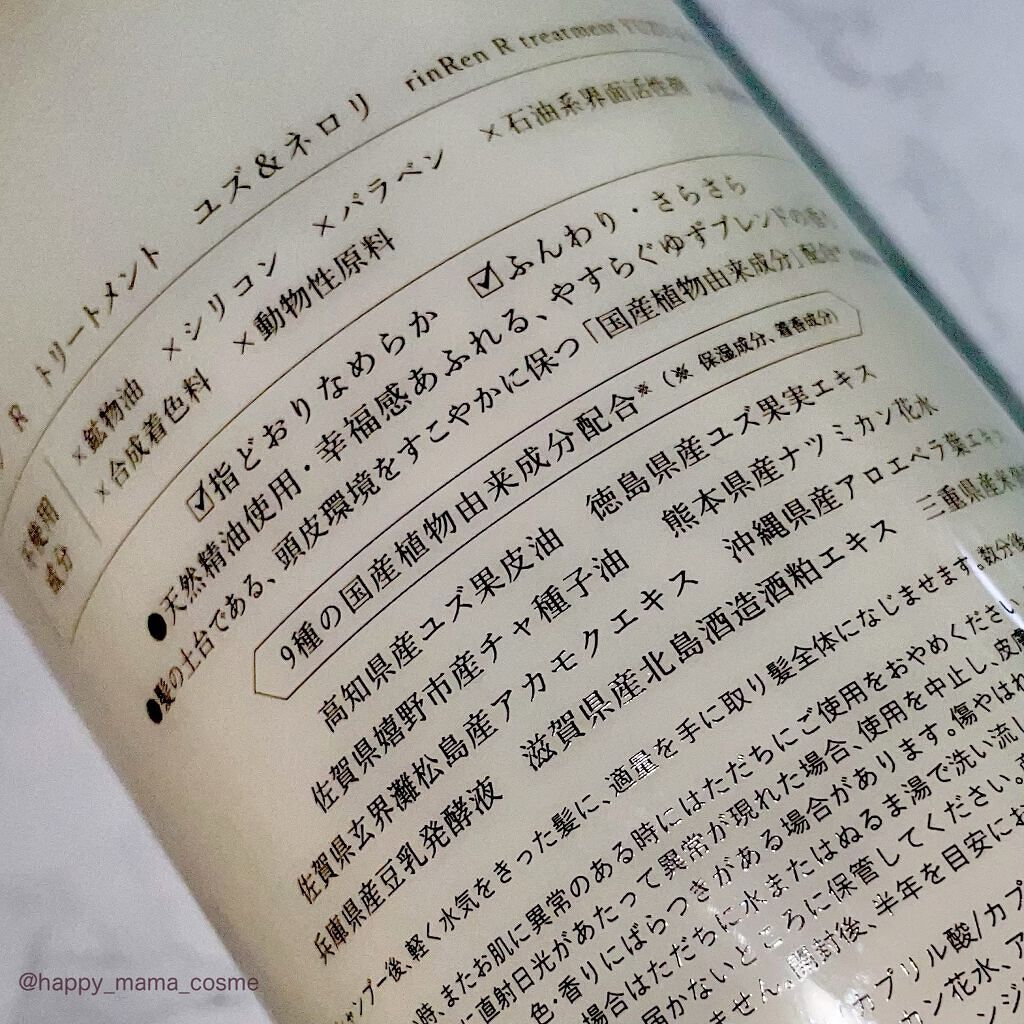 R トリートメント ユズ&ネロリ rinRen R treatment
不使用成分
×鉱物油 ×シリコン ×パラベン ×石油系界面活性剤
×合成着色料 ×動物性原料
☑指どおりなめらか ☑ふんわり・さらさら
●天然精油使用・幸福感あふれる、やすらぐゆずブレンドの香り
●髪の土台である、頭皮環境をすこやかに保つ「国産植物由来成分」配合*
9種の国産植物由来成分配合※(※ 保湿成分、着香成分)
高知県産ユズ果皮油 徳島県産ユズ果実エキス
佐賀県嬉野市産チャ種子油 熊本県産ナツミカン花水
佐賀県玄界灘松島産アカモクエキス 沖縄県産アロエベラ葉エキ
兵庫県産豆乳発酵液 滋賀県産北島酒造酒粕エキス 三重県産
シャンプー後、軽く水気をきった髪に、適量を手に取り髪全体になじませます。数分後
時、またお肌に異常のある時にはただちにご使用をおやめください
直射日光があたって異常が現れた場合、使用を中止し、皮膚
色・香りにばらつきがある場合があります。傷やはれ
場合はただちに水またはぬるま湯で洗い流し
届かないところに保管してください。
ません。開封後、半年を目安にお
カプリル酸/カプ
カン花水、ア
ンジ
@happy_mama_cosme